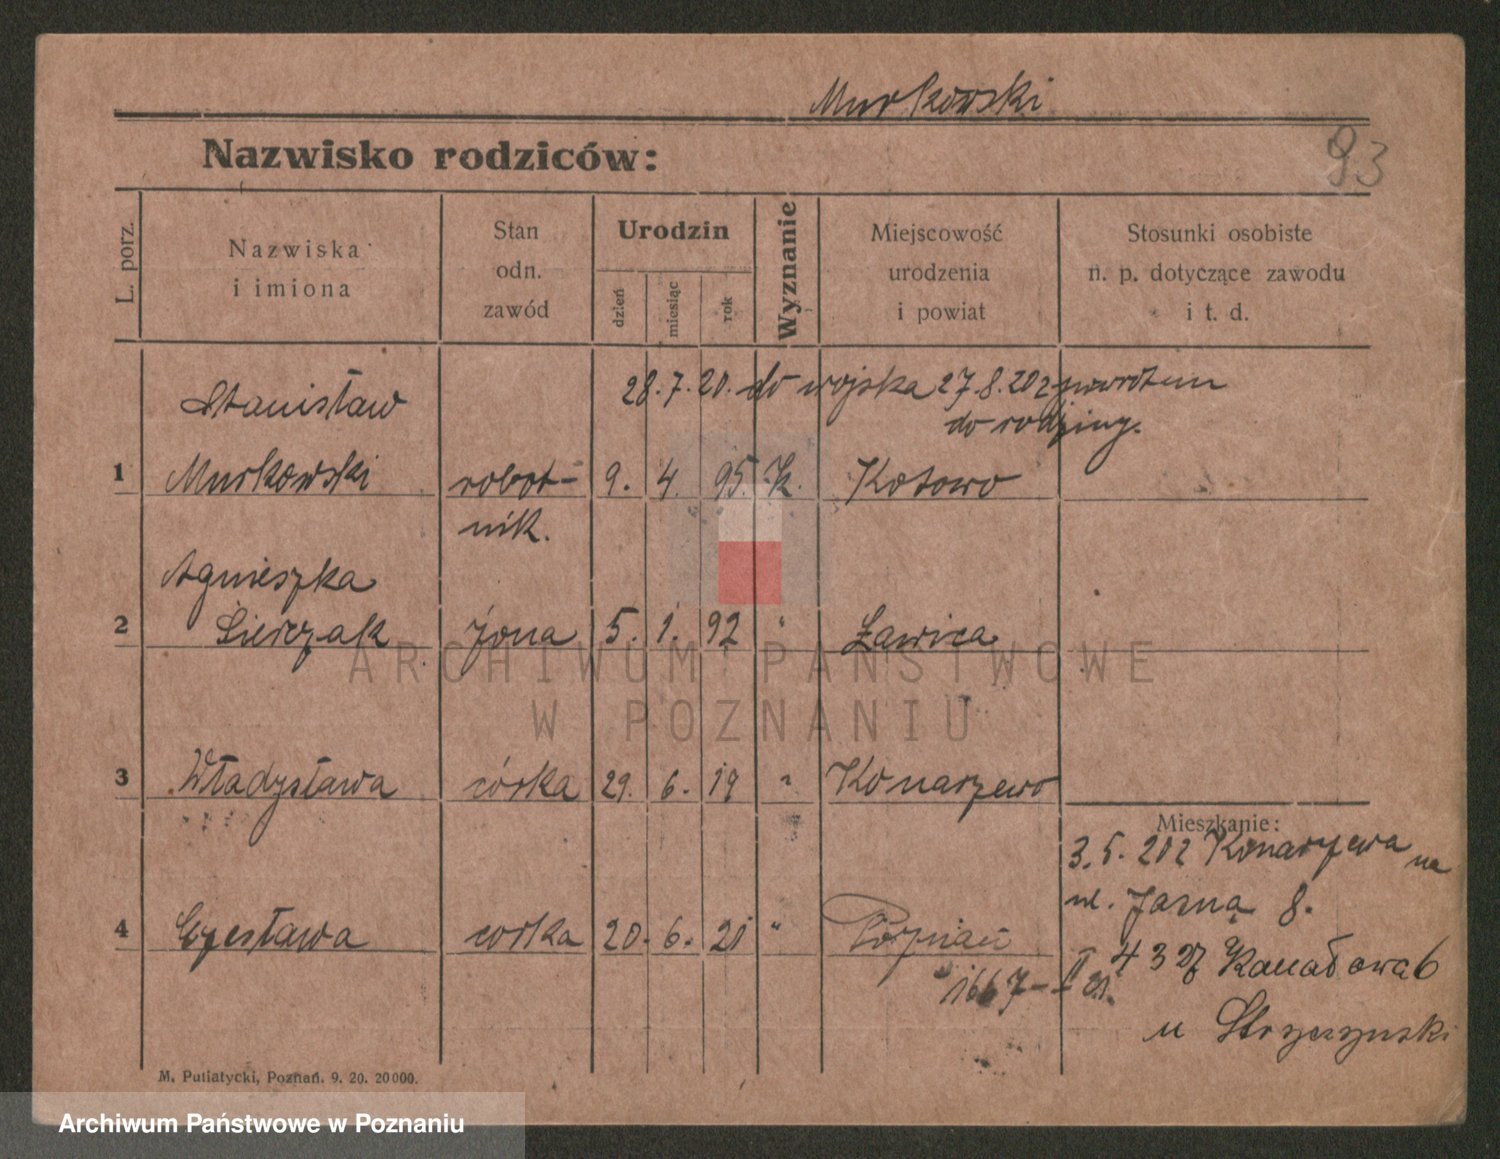 Murkowski
93
Nazwisko rodziców:
L. porz.
Nazwiska
i imiona
Stan
odn.
zawód
Urodzin
dzień
miesiąc
rok
Wyznanie
Miejscowość
urodzenia
i powiat
Stosunki osobiste
n. p. dotyczące zawodu
i t. d.
28.7.20. do wojska 27.8.20 z powrotem
do rodziny.
Stanisław
1 Murkowski robot- 9. 4. 95. K. Kotowo
nik.
Agnieszka
2 Sierczak żona 5. 1. 92 " Ławica
3 Władysława córka 29. 6. 19 " Konarzewo
4 Czesława córka 20. 6. 21 " Poznań
1667-II 21.
Mieszkanie:
3.5.20 z Konarzewa na
ul. Jasną 8.
4 3 27 Kanałowa 6
u Stryczynski
M. Putiatycki, Poznań. 9. 20. 20000.
ARCHIWUM PAŃSTWOWE
W POZNANIU
Archiwum Państwowe w Poznaniu